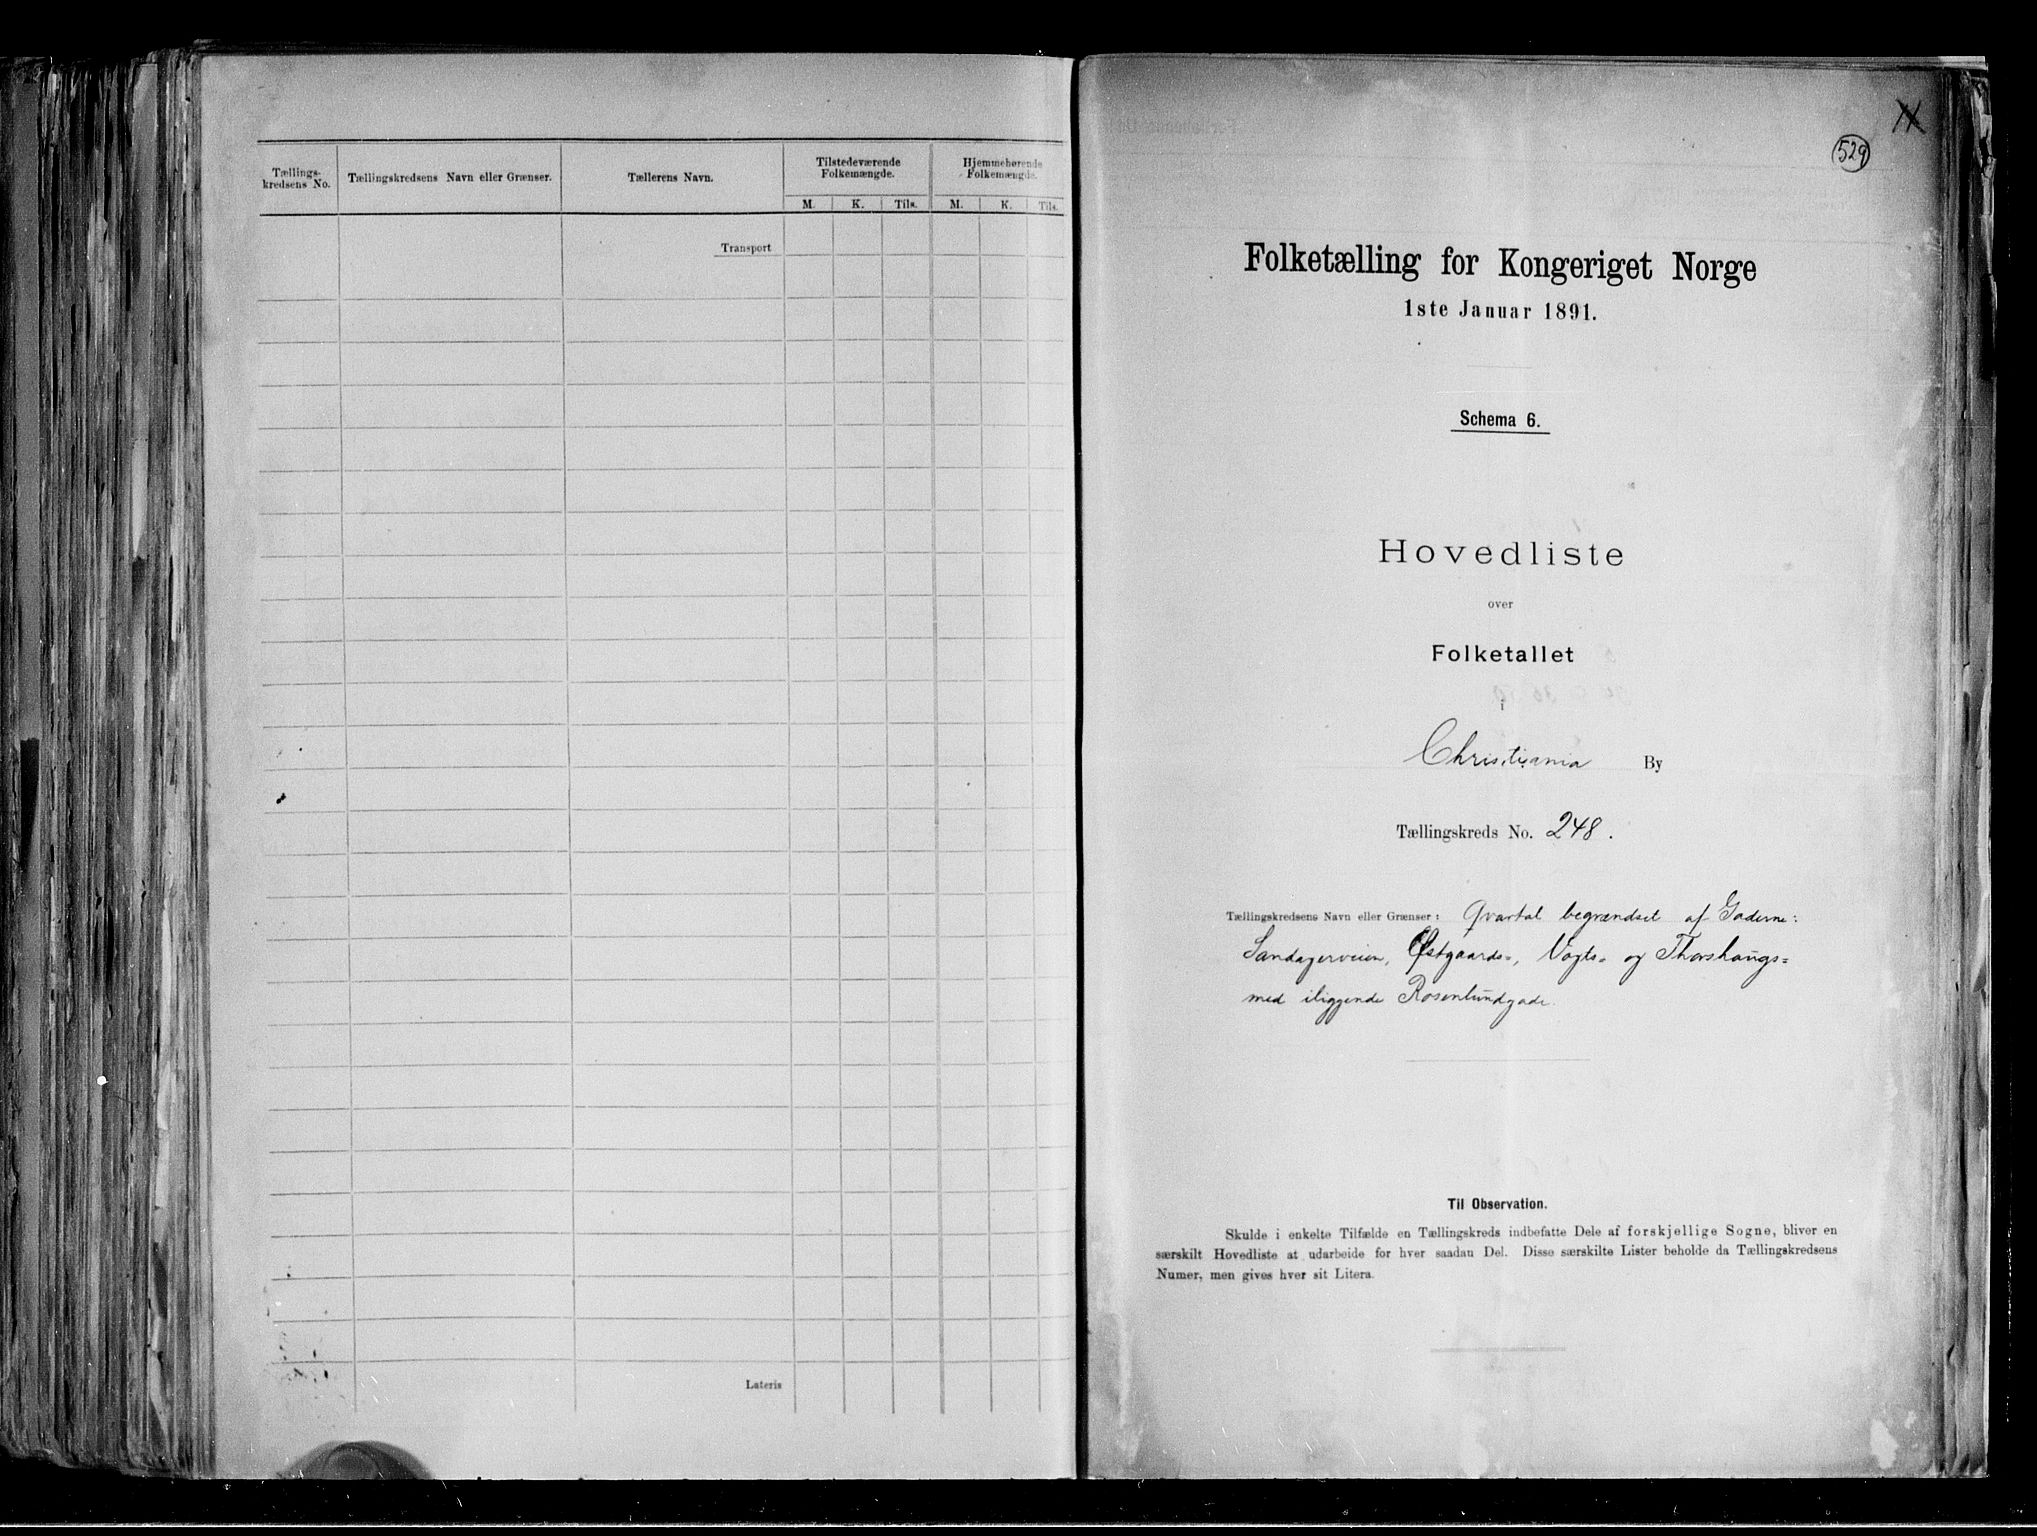 Tællings-
kredsens No.
Tællingskredsens Navn eller Grænser.
Tællerens Navn.
Tilstedeværende
Folkemængde.
Hjemmehørende
Folkemængde.
M. K. Tils. M. K. Tils.
Transport
Lateris
529
Folketælling for Kongeriget Norge
1ste Januar 1891.
Schema 6.
Hovedliste
over
Folketallet
i
Christiania By
Tællingskreds No. 248.
Tællingskredsens Navn eller Grænser: Qvartal begrændset af Gaderne:
Sandagerveien, Østgaards-, Vogts- og Thorshaugs-
med iliggende Rosenlundgade.
Til Observation.
Skulde i enkelte Tilfælde en Tællingskreds indbefatte Dele af forskjellige Sogne, bliver en
særskilt Hovedliste at udarbeide for hver saadan Del. Disse særskilte Lister beholde da Tællingskredsens
Numer, men gives hver sit Litera.